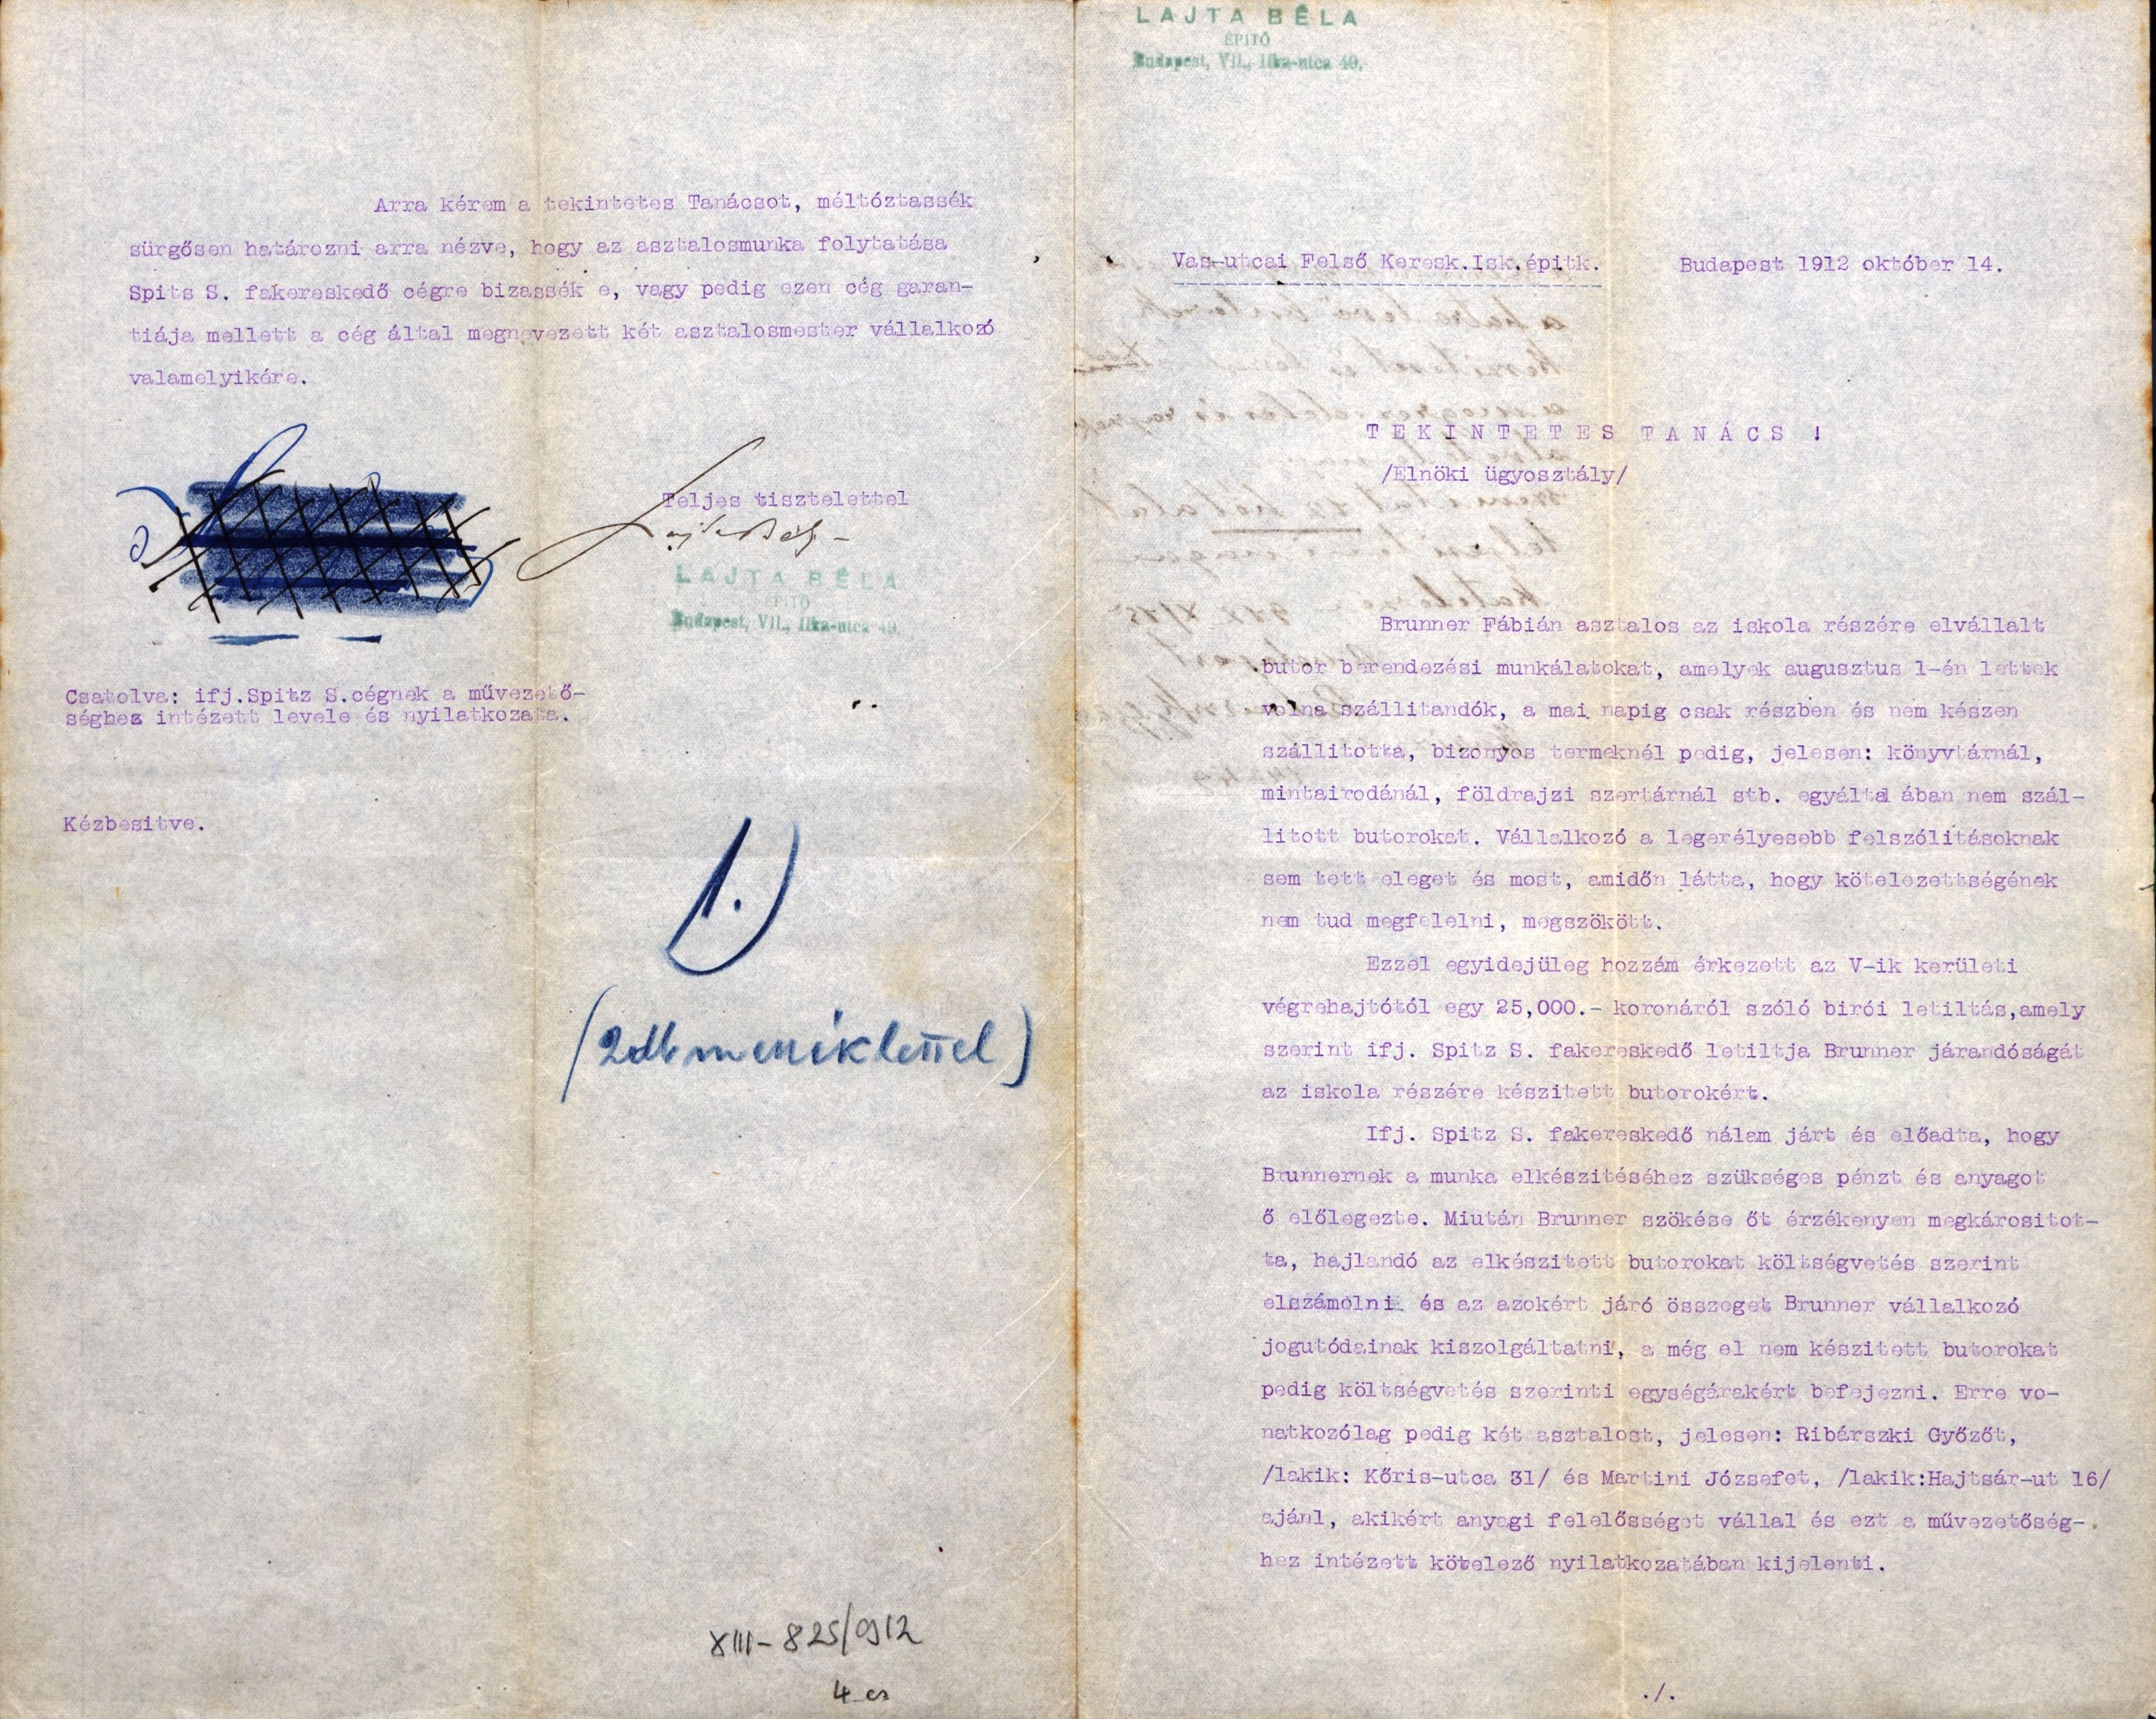 LAJTA BÉLA
ÉPITŐ
Budapest, VII., Ilka-utca 49.
Vas-utcai Felső Keresk.Isk.épitk.
Budapest 1912 október 14.
TEKINTETES TANÁCS !
/Elnöki ügyosztály/
Brunner Fábián asztalos az iskola részére elvállalt
butor berendezési munkálatokat, amelyek augusztus 1-én lettek
volna szállitandók, a mai napig csak részben és nem készen
szállitotta, bizonyos termeknél pedig, jelesen: könyvtárnál,
mintairodánál, földrajzi szertárnál stb. egyáltal ában nem szál-
litott butorokat. Vállalkozó a legerélyesebb felszólitásoknak
sem tett eleget és most, amidőn látta, hogy kötelezettségének
nem tud megfelelni, megszökött.
Ezzel egyidejüleg hozzám érkezett az V-ik kerületi
végrehajtótól egy 25,000.- koronáról szóló birói letiltás,amely
szerint ifj. Spitz S. fakereskedő letiltja Brunner járandóságát
az iskola részére készitett butorokért.
Ifj. Spitz S. fakereskedő nálam járt és előadta, hogy
Brunnernek a munka elkészitéséhez szükséges pénzt és anyagot
ő előlegezte. Miután Brunner szökése őt érzékenyen megkárositot-
ta, hajlandó az elkészitett butorokat költségvetés szerint
elszámolni és az azokért járó összeget Brunner vállalkozó
jogutódainak kiszolgáltatni, a még el nem készitett butorokat
pedig költségvetés szerinti egységárakért befejezni. Erre vo-
natkozólag pedig két asztalost, jelesen: Ribárszki Győzőt,
/lakik: Kőris-utca 31/ és Martini Józsefet, /lakik:Hajtsár-ut 16/
ajánl, akikért anyagi felelősséget vállal és ezt a művezetőség-
hez intézett kötelező nyilatkozatában kijelenti.
./.
Arra kérem a tekintetes Tanácsot, méltóztassék
sürgősen határozni arra nézve, hogy az asztalosmunka folytatása
Spits S. fakereskedő cégre bizassék e, vagy pedig ezen cég garan-
tiája mellett a cég által megnevezett két asztalosmester vállalkozó
valamelyikére.
Teljes tisztelettel
Lajta Béla
LAJTA BÉLA
ÉPITŐ
Budapest, VII., Ilka-utca 49.
Csatolva: ifj.Spitz S.cégnek a művezető-
séghez intézett levele és nyilatkozata.
Kézbesitve.
1.)
(2 db melléklettel)
XIII-825/912
4 cs